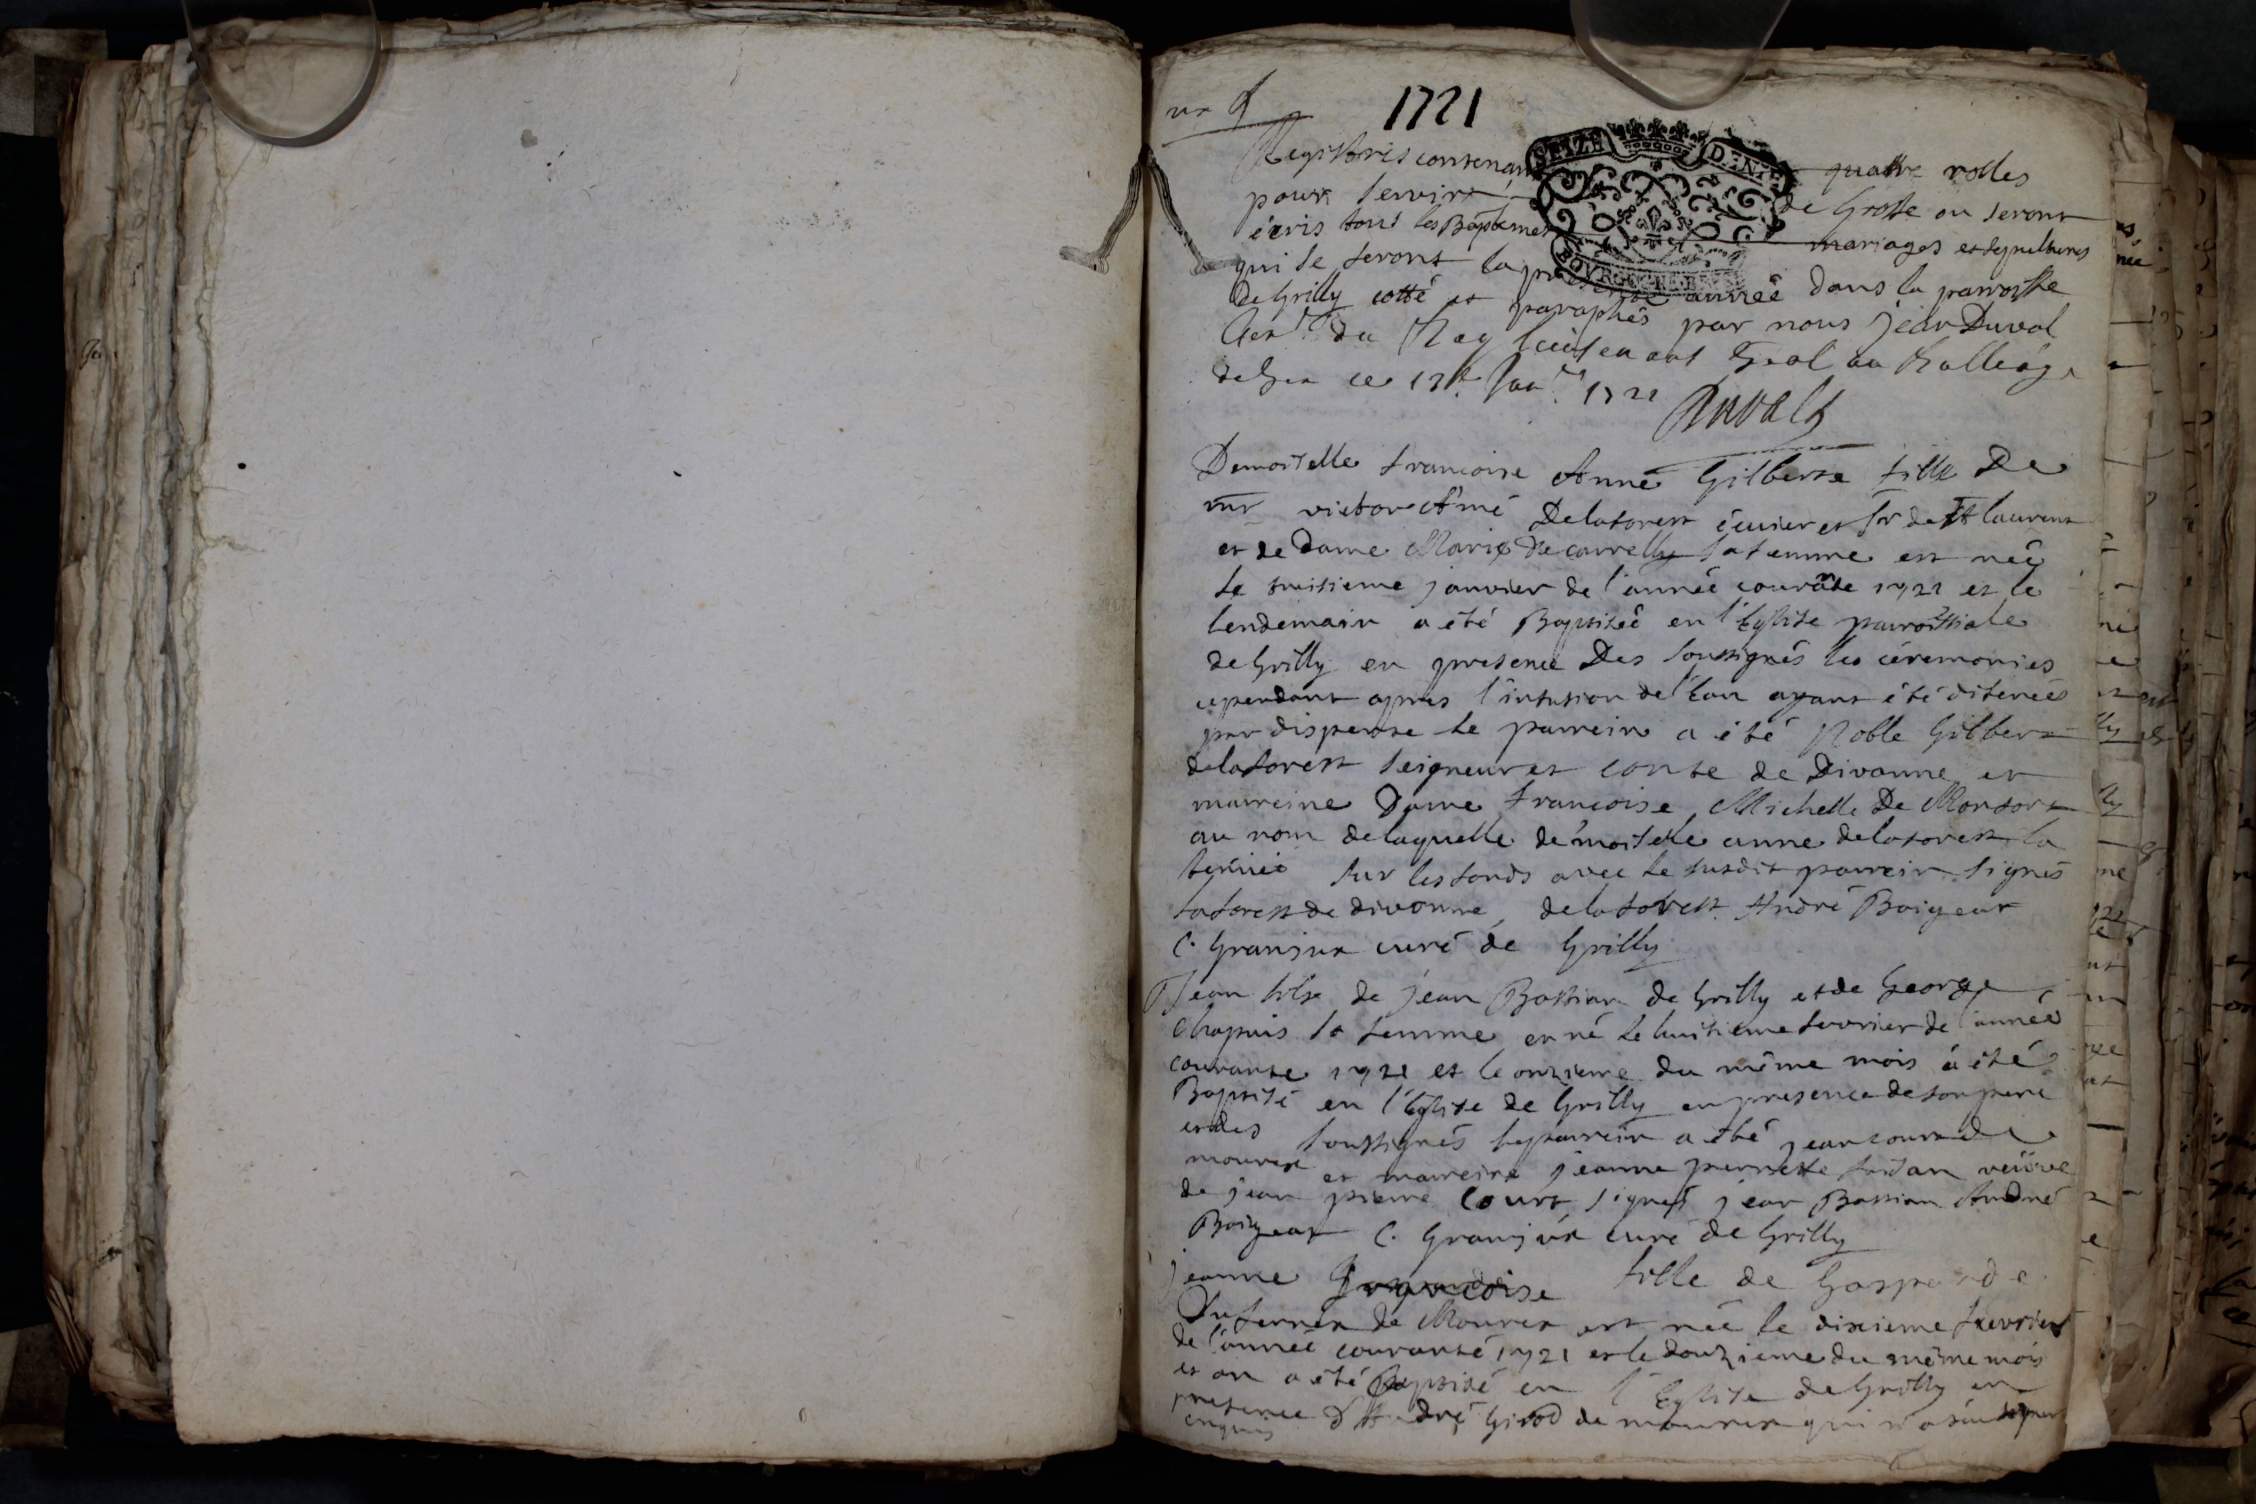 1721
SEIZE DENIE
Registres contenant quatre rolles
pour servir de Grosse ou seront
écris tous les Baptemes mariages et sepultures
qui se feront la presente année dans la parroisse
de Grilly cotté et paraphés par nous jean Duval
du Roy lieutenant Gral au Balliage
de Gex ce 13e Janr 1721
Duval
Demoiselle francoise Anne Gilberte fille De
mr victor Amé Delaforest écuier et sr de st laurent
et de Dame Marie De sa femme est neé
le huitieme janvier de l'année courāte 1721 et le
lendemain a été Baptiseé en l'Eglise parroissiale
de Grilly en presence Des soussignés les céremonies
cependant apres l'infusion de l'Eau ayant été difereés
par dispense le parrein a été Noble Gilbert
delaforest seigneur et conte de Divonne et
marreine Dame francoise Michelle De Monfort
au nom de laquelle demoiselle anne delaforest la
sur les fonds avec le susdit parrein signés
laforest de divonne, delaforest André Boigear
C. Granjux curé de Grilly
Jean fils de jean Bastian de Grilly et de George
Chapuis sa femme est né le huitieme fevrier de l'année
courante 1721 et le onzieme du même mois a été
Baptisé en l'Eglise de Grilly en presence de son pere
et des soussignés le parrein a été jean court de
mourex et marreine jeanne pernette veuve
de jean pierre Court, signés jean Bastian André
Boigear C. Granjux curé de Grilly
jeanne francoise fille de Gasparde
Dufernex de Mourex est neé le dixieme fevrier
de l'année courante 1721 et le douzieme du même mois
et an a été Baptisé en l'Eglise de Grilly en
presence d'André Girod de mourex qui n'a sçu signer
enquis